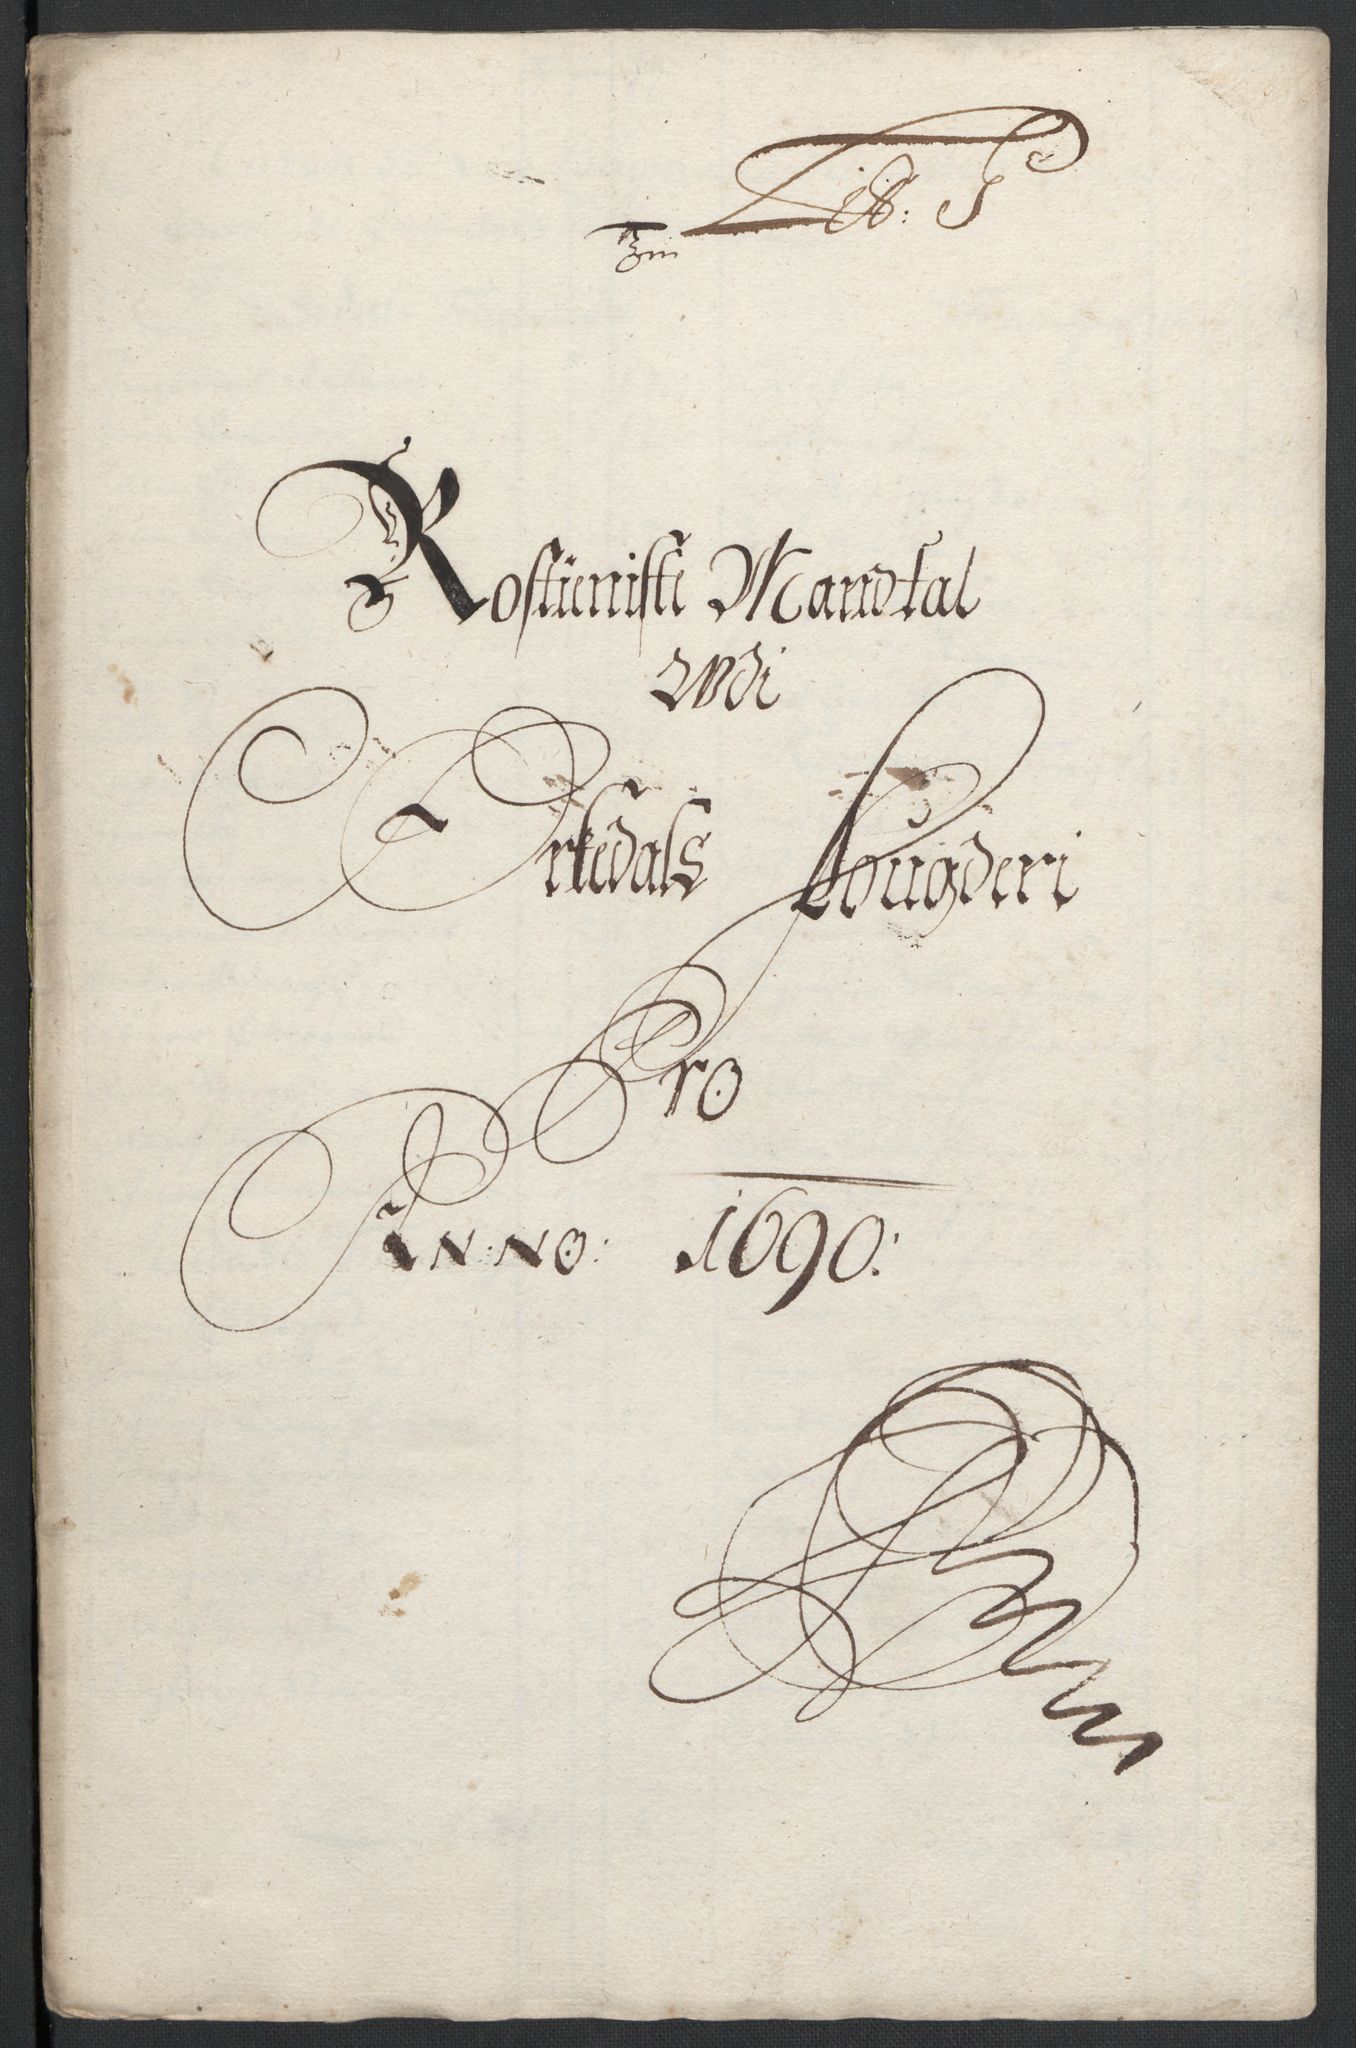 Lit: J
Rostieniste Mandtal
Wdi
Ørkedals Fougderi
Pro
Anno: 1690: